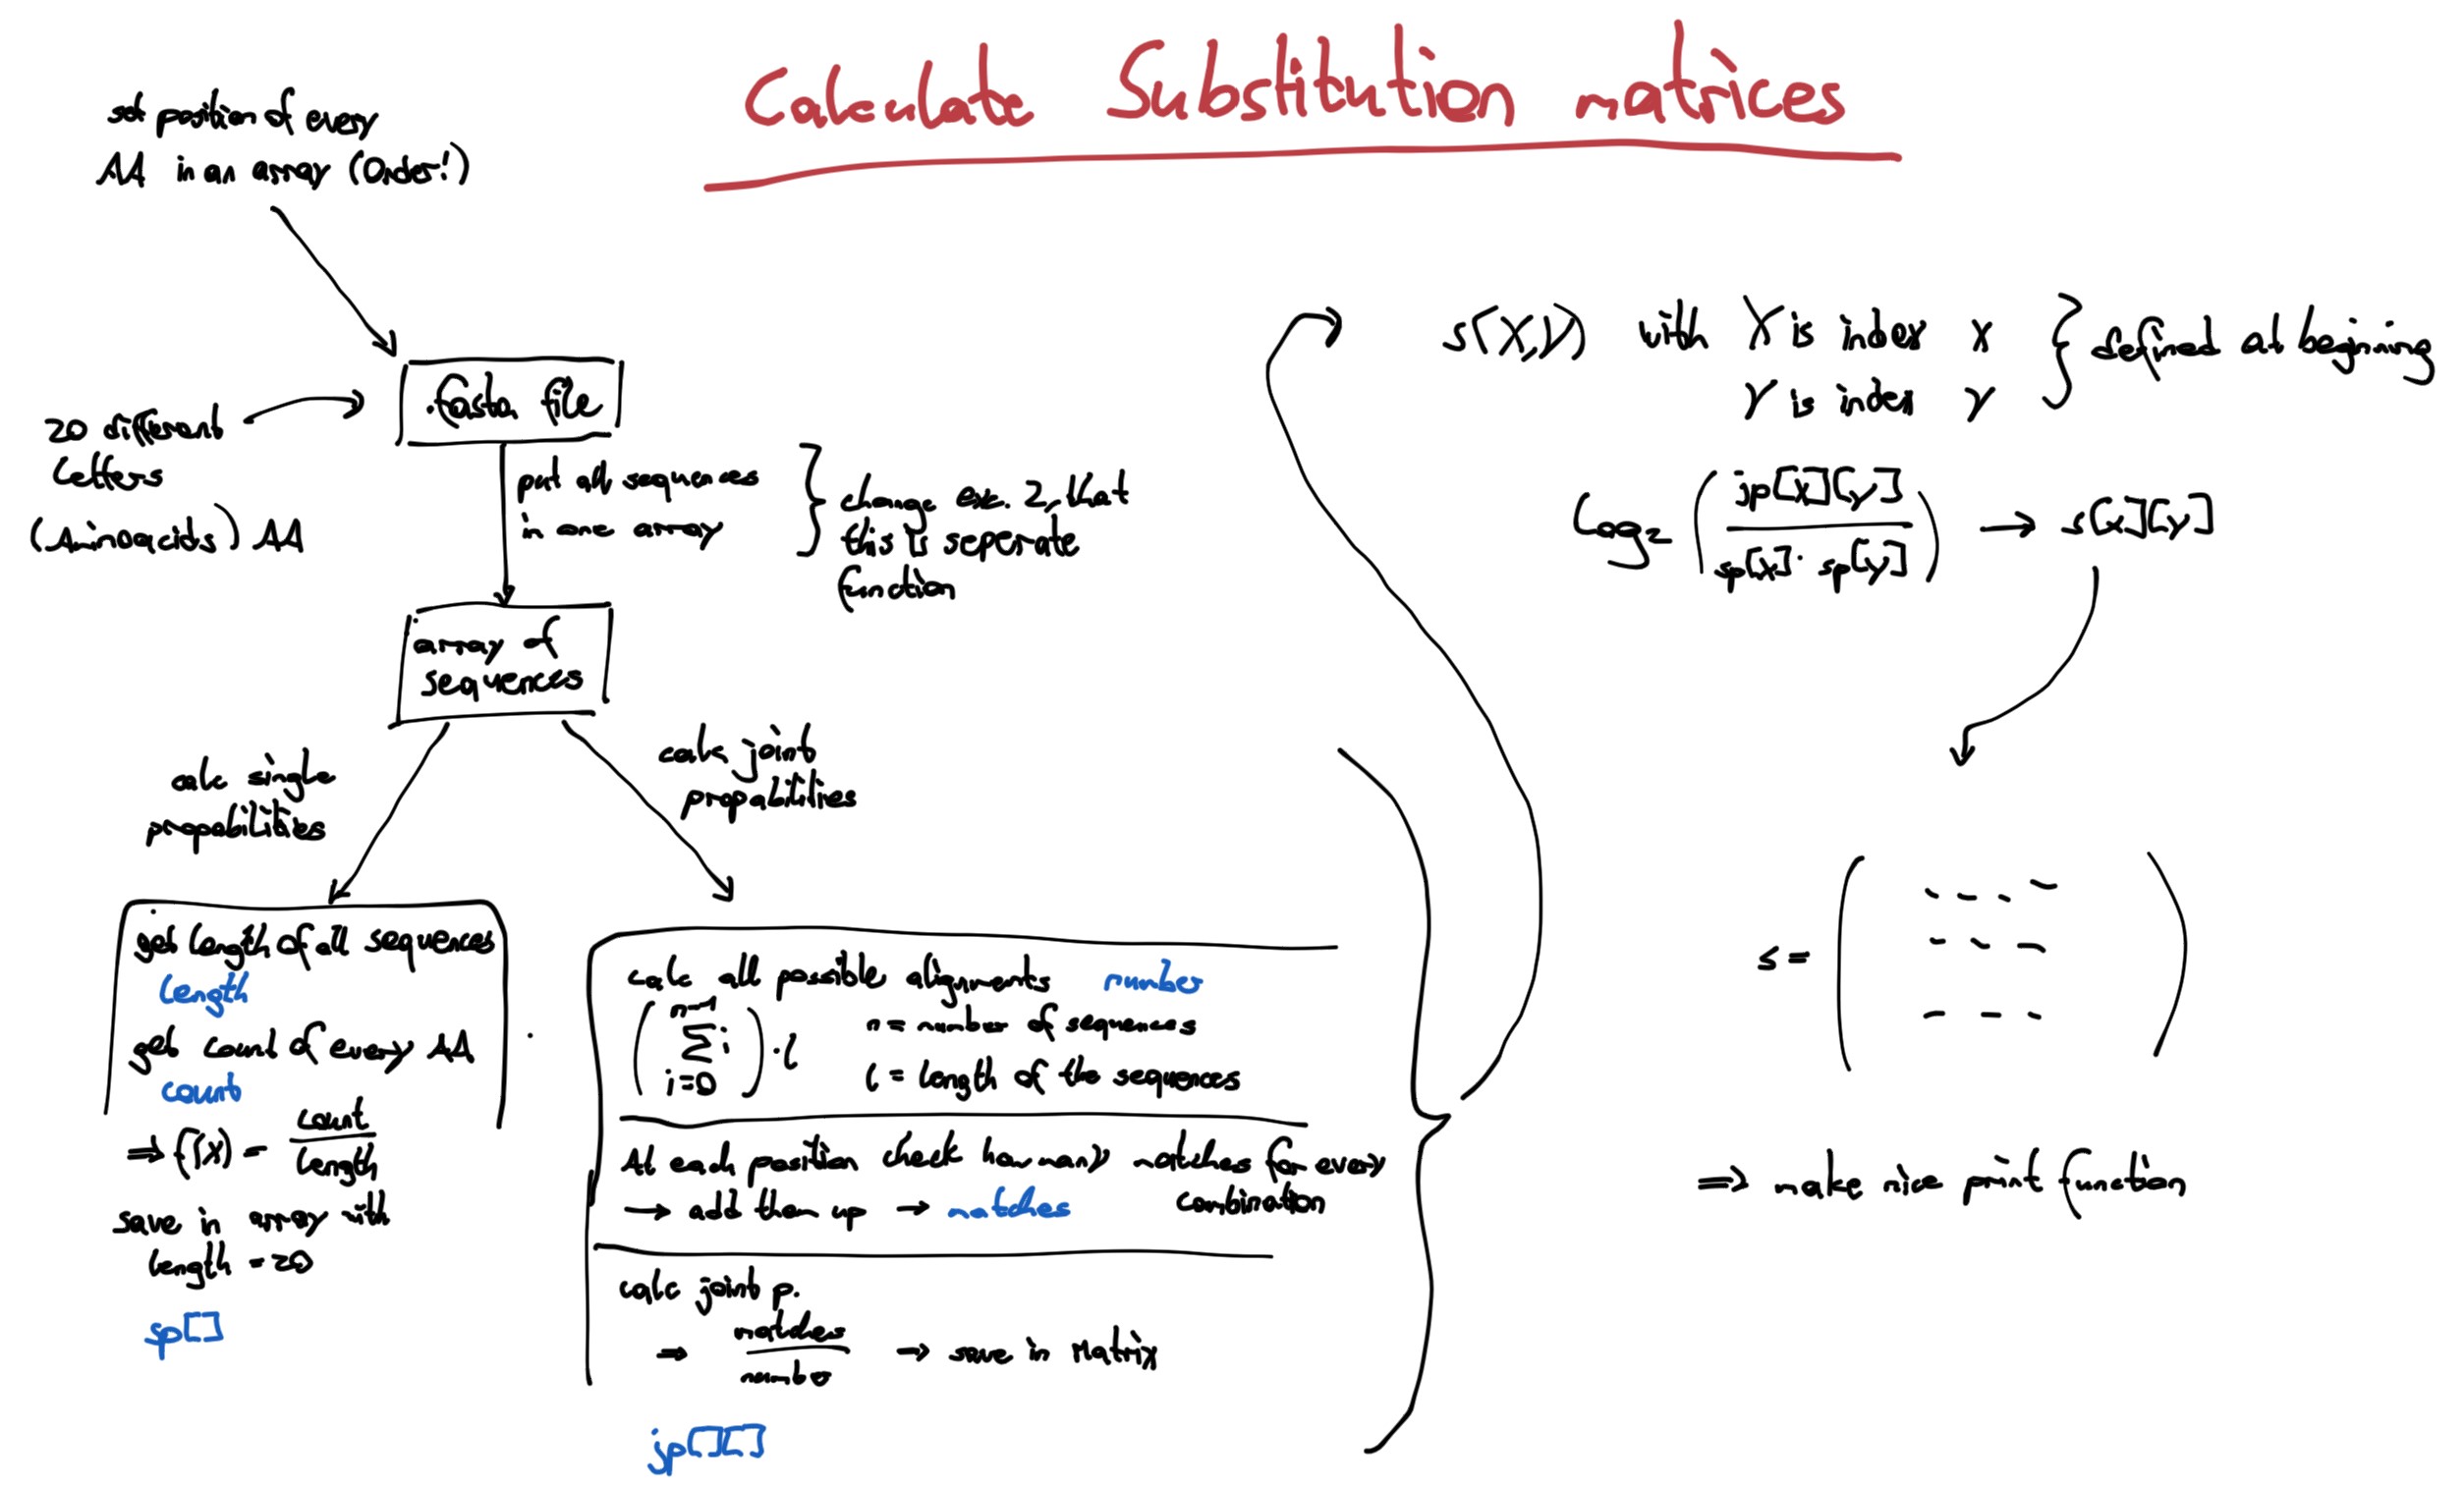 Calculate Substitution matrices
set position of every
AA in an array (Order!)
20 different
Letters
(Aminoacids) AA
.fasta file
put all sequences
in one array
} change exc. 2, that
this is seperate
function
array of
sequences
calc single
propabilities
calc joint
propabilities
get length of all sequences
length
get count of every AA
count
⇒ f(X) = count / length
save in array with
length = 20
sp[]
calc all possible alignments number
( n-1 Σ i=0 i ) · l
n = number of sequences
l = length of the sequences
At each position check how many matches for every
combination
→ add them up → matches
calc joint p.
⇒ matches / number → save in Matrix
jp[][]
s(X,Y) with X is index x
Y is index y
} defined at beginning
Log₂ ( jp[x][y] / sp[x] · sp[y] ) → s[x][y]
s = ( )
⇒ make nice print function